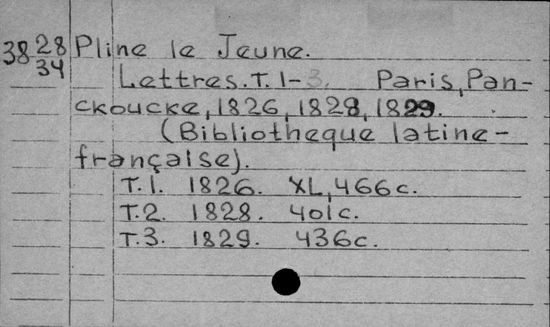 38 28/34 Pline le Jeune.
Lettres. T. 1-3. Paris, Pan-
ckoucke, 1826, 1828, 1829.
(Bibliotheque latine-
française).
T.1. 1826. XL, 466c.
T.2. 1828. 401c.
T.3. 1829. 436c.